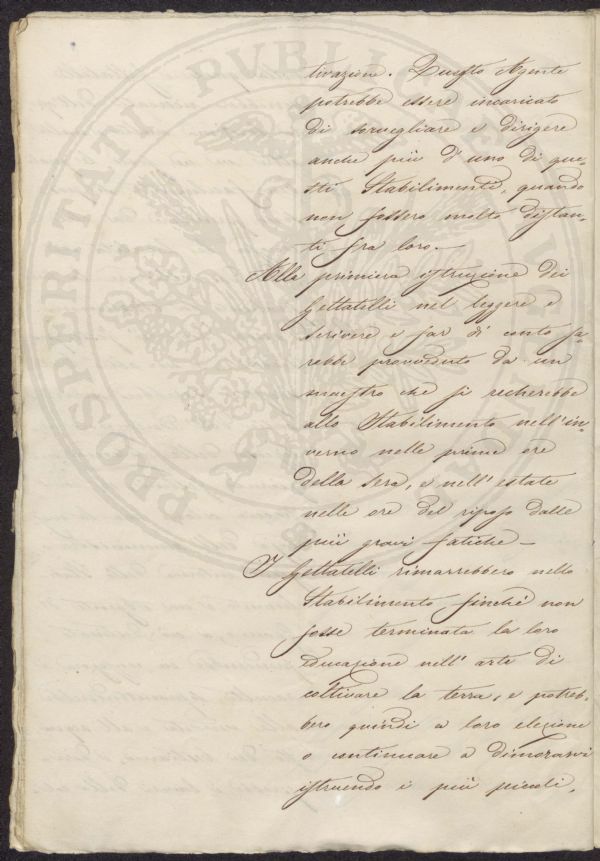 tivazione. Questo Agente
potrebbe essere incaricato
di sorvegliare e dirigere
anche più d'uno di que-
sti Stabilimenti, quando
non fossero molto distan-
ti fra loro.—
Alla primiera istruzione dei
Gettatelli nel leggere e
scrivere e far di conto sa-
rebbe provveduto da un
maestro che si recherebbe
allo Stabilimento nell'in-
verno nelle prime ore
della sera, e nell'estate
nelle ore del riposo dalle
più gravi fatiche —
I Gettatelli rimarrebbero nello
Stabilimento, finché non
fosse terminata la loro
educazione nell'arte di
coltivare la terra, e potreb-
bero quindi a loro elezione
o continuare a dimorarvi
istruendo i più piccoli,
PROSPERITATI PVBLICAE